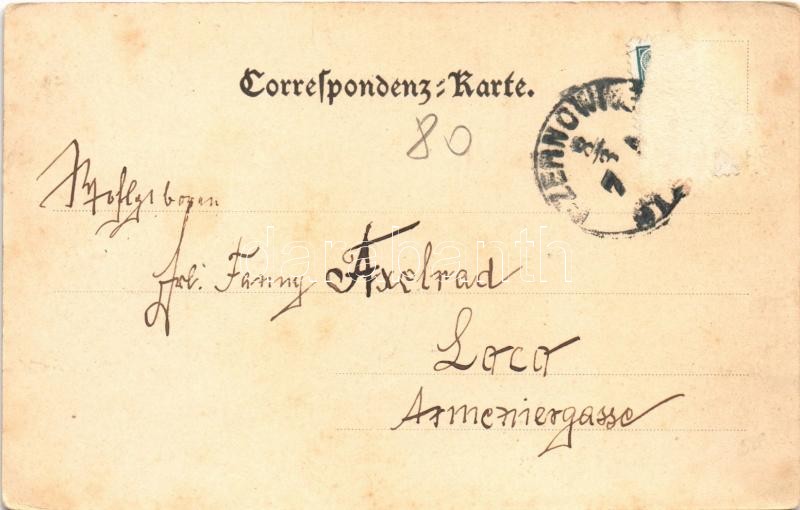 Correspondenz-Karte.
80
CZERNOWI
8/3
7
Wohlgeboren
Frl. Fanny Axelrad
darabanth
Loco
Armeniergasse